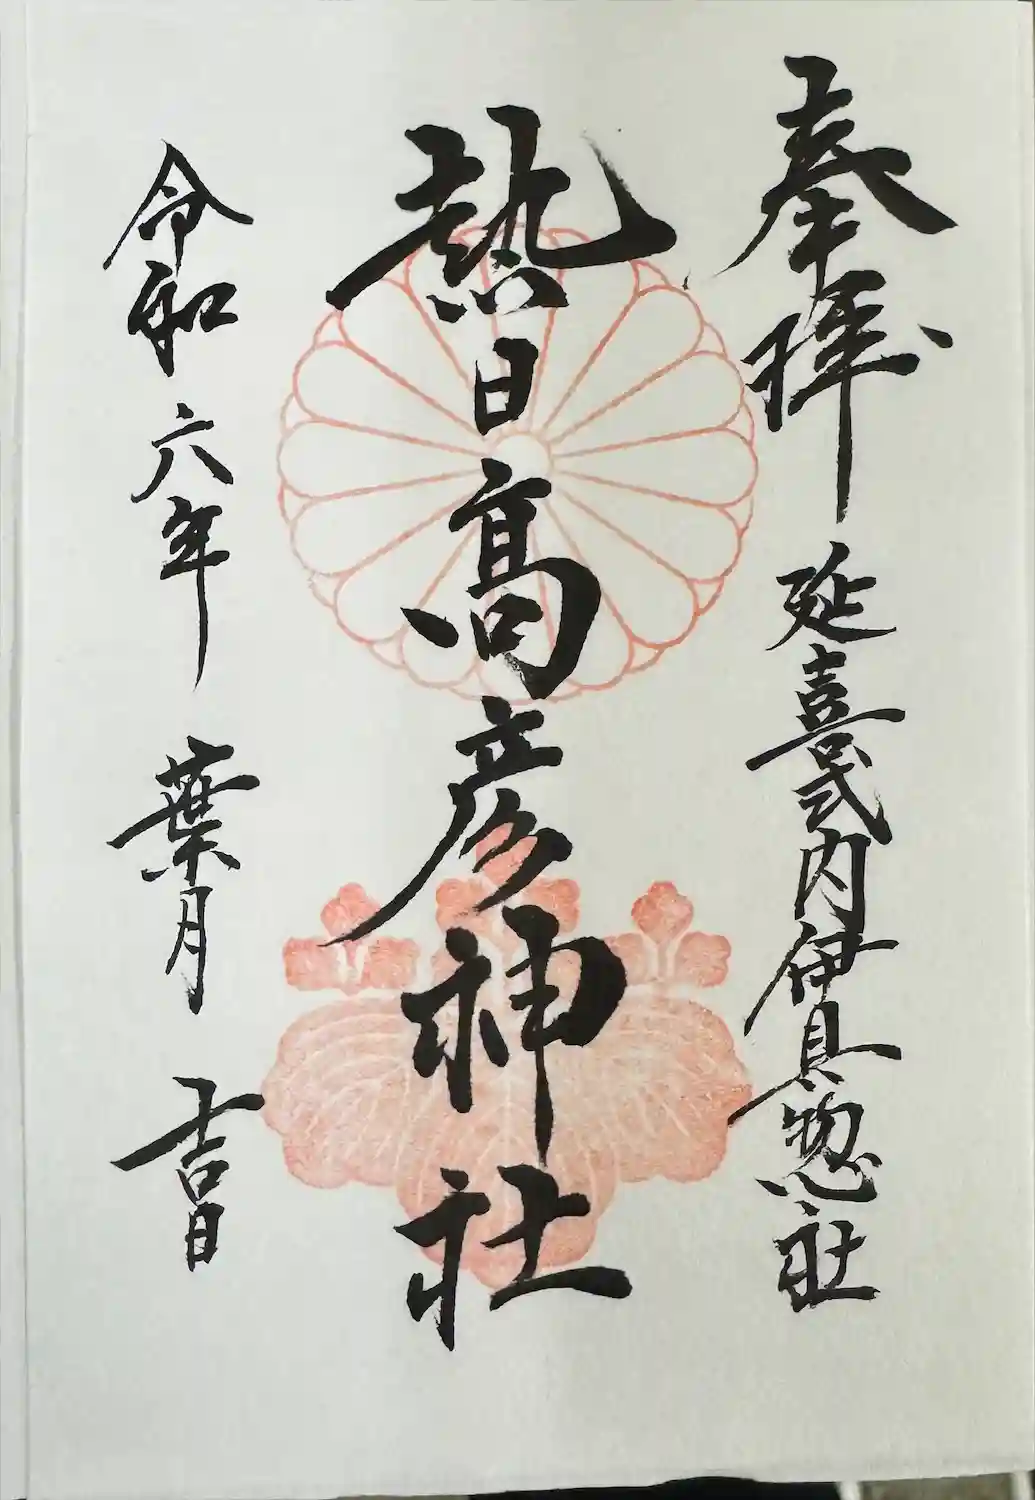 奉拝
延喜式内伊具惣社
熱日高彦神社
令和六年 葉月 吉日